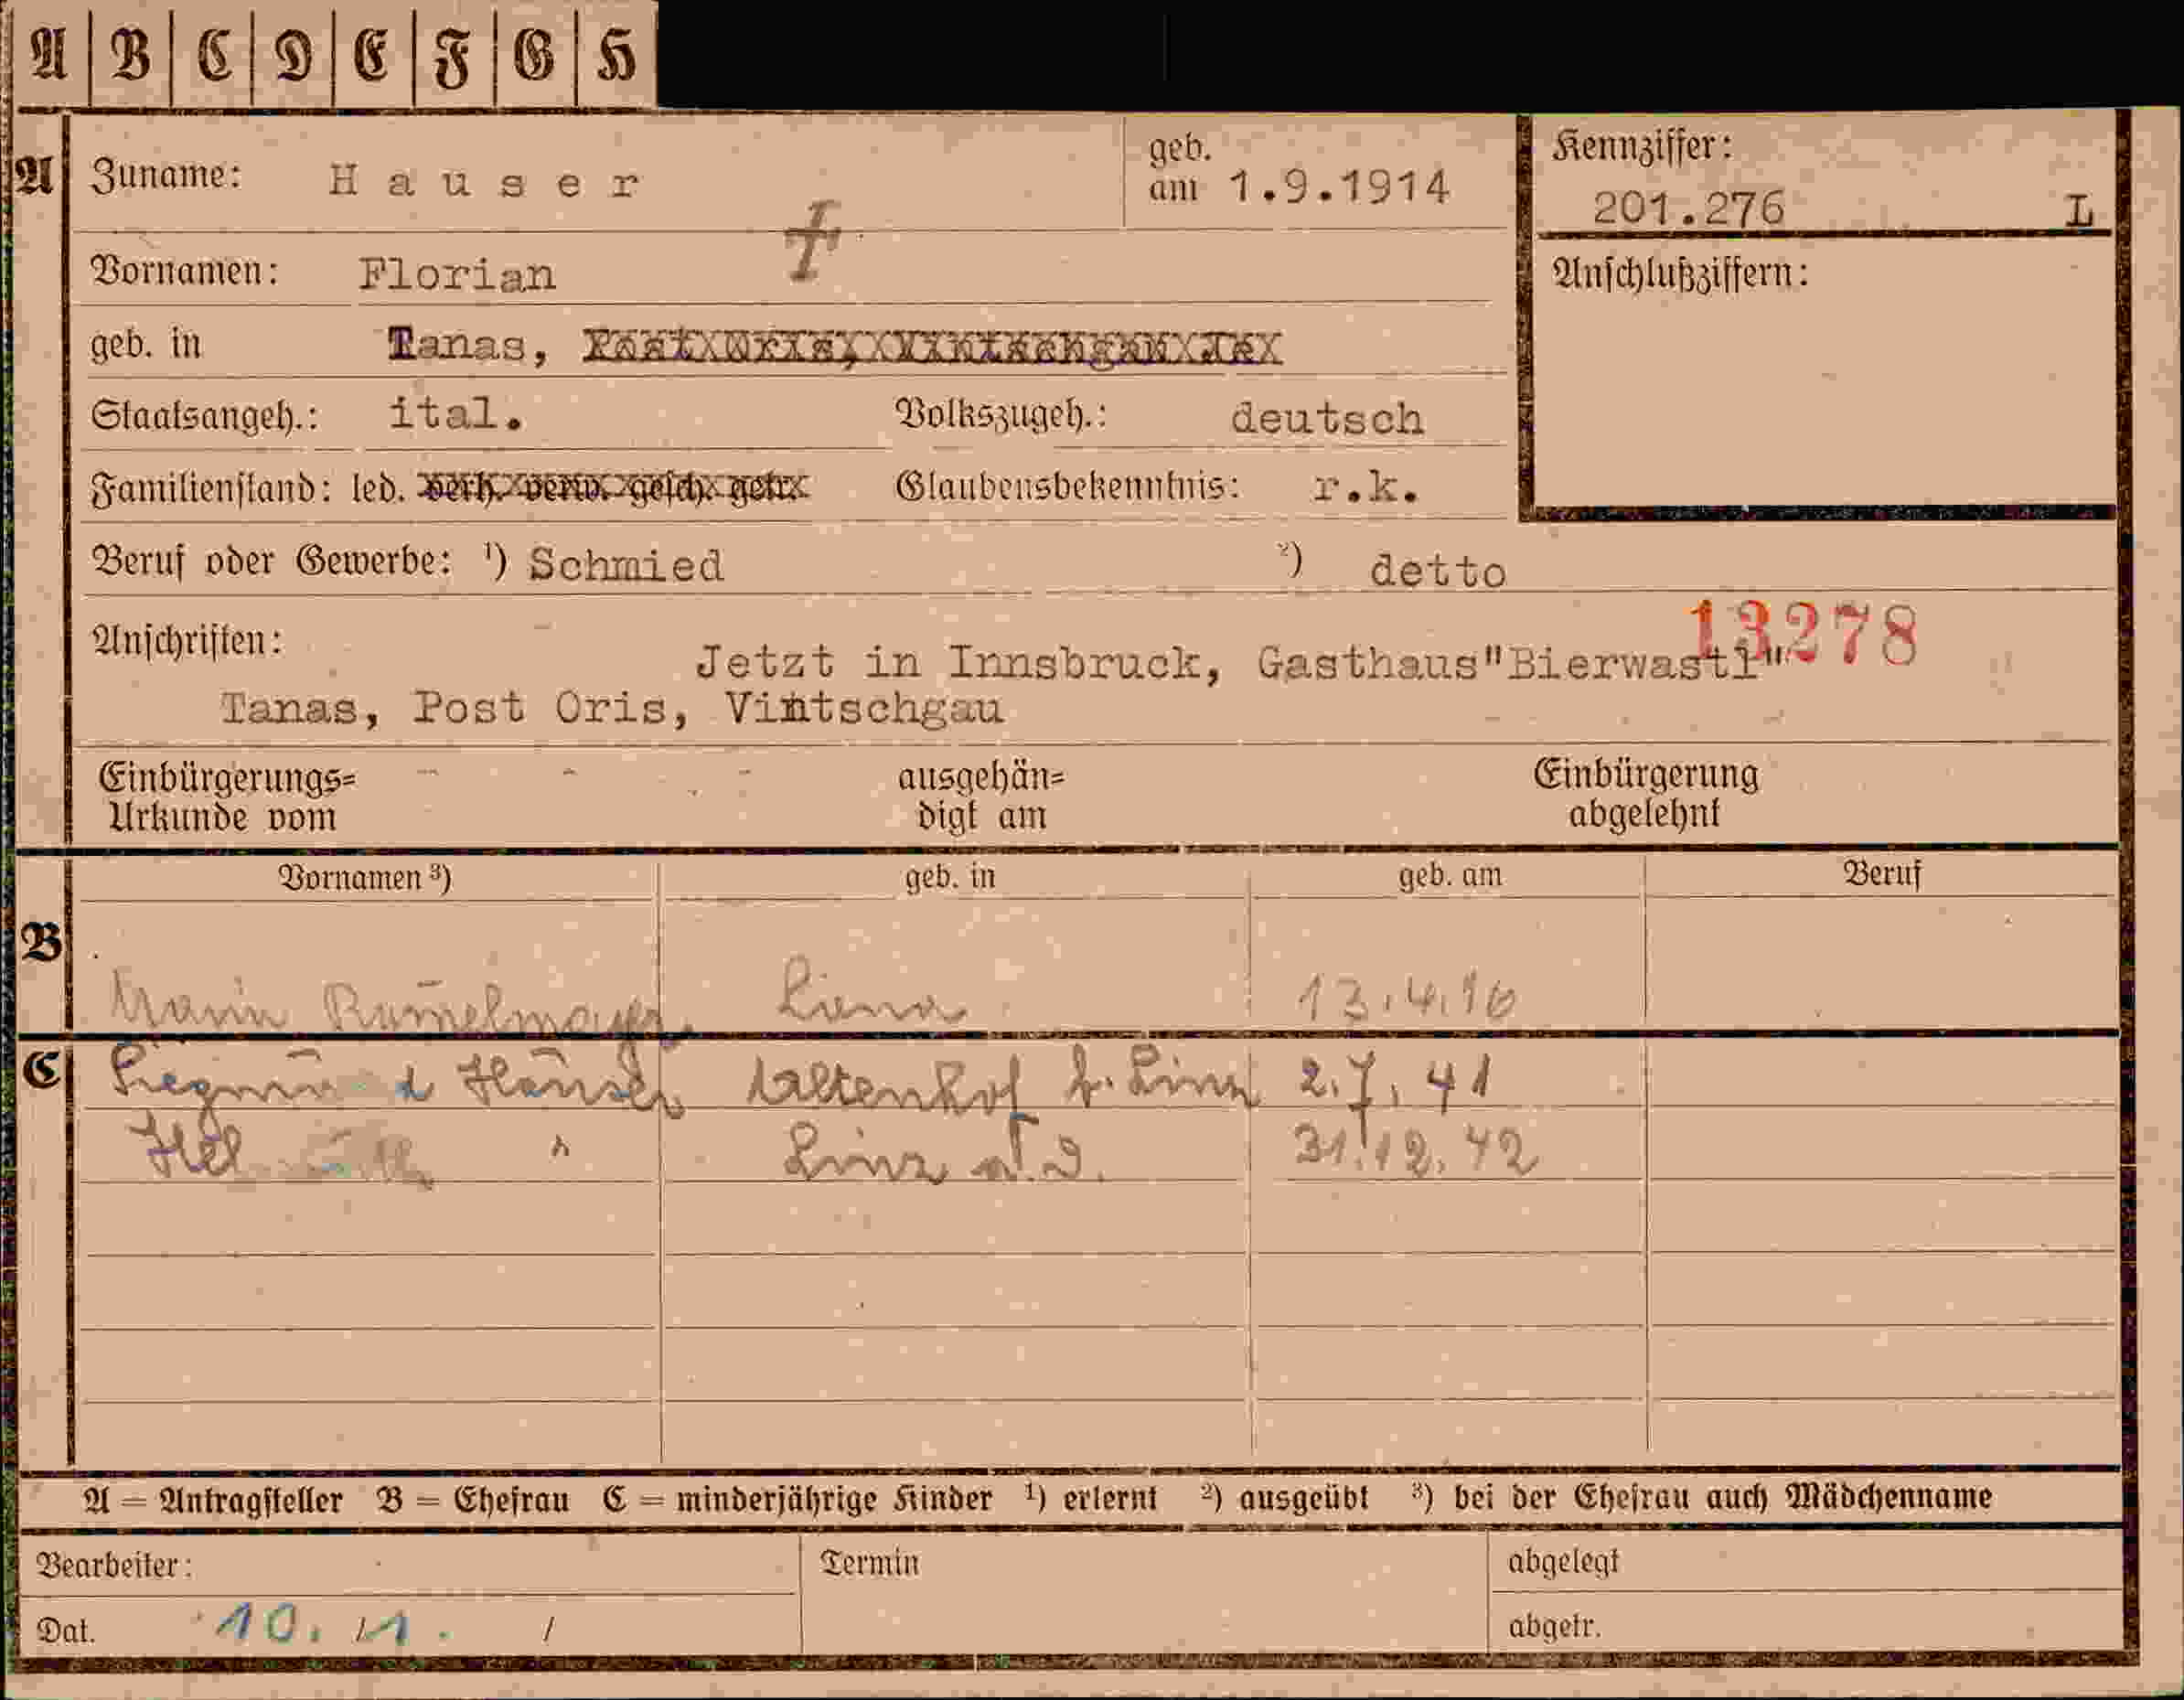 A B C D E F G H
A Zuname: Hauser geb. am 1.9.1914 Kennziffer: 201.276 L
Vornamen: Florian Anschlußziffern:
geb. in Tanas, Post Oris, Vintschgau
Staatsangeh.: ital. Volkszugeh.: deutsch
Familienstand: led. verh. verw. gesch. getr. Glaubensbekenntnis: r.k.
Beruf oder Gewerbe: ¹) Schmied ²) detto
13278
Anschriften: Jetzt in Innsbruck, Gasthaus"Bierwastl"
Tanas, Post Oris, Vintschgau
Einbürgerungs= Urkunde vom ausgehän= digt am Einbürgerung abgelehnt
Vornamen ³) geb. in geb. am Beruf
B Maria 13.4.16
C Siegmund Hauser Altenhof b. Linz 2.7.41
Helmuth " Linz a.D. 31.12.42
A = Antragsteller B = Ehefrau C = minderjährige Kinder ¹) erlernt ²) ausgeübt ³) bei der Ehefrau auch Mädchenname
Bearbeiter: Termin abgelegt
Dat. 10. 11. / abgetr.